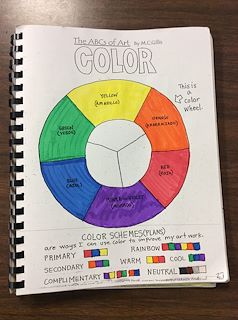 The ABCs of Art By M.C. Gillis
COLOR
This is
a color
wheel.
YELLOW
(AMARILLO)
ORANGE
(ANARANJADO)
GREEN
(VERDE)
RED
(ROJA)
BLUE
(AZUL)
VIOLET
(MORADO)
COLOR SCHEMES (PLANS)
are ways I can use color to improve my art work.
PRIMARY RAINBOW
SECONDARY WARM COOL
COMPLIMENTARY NEUTRAL